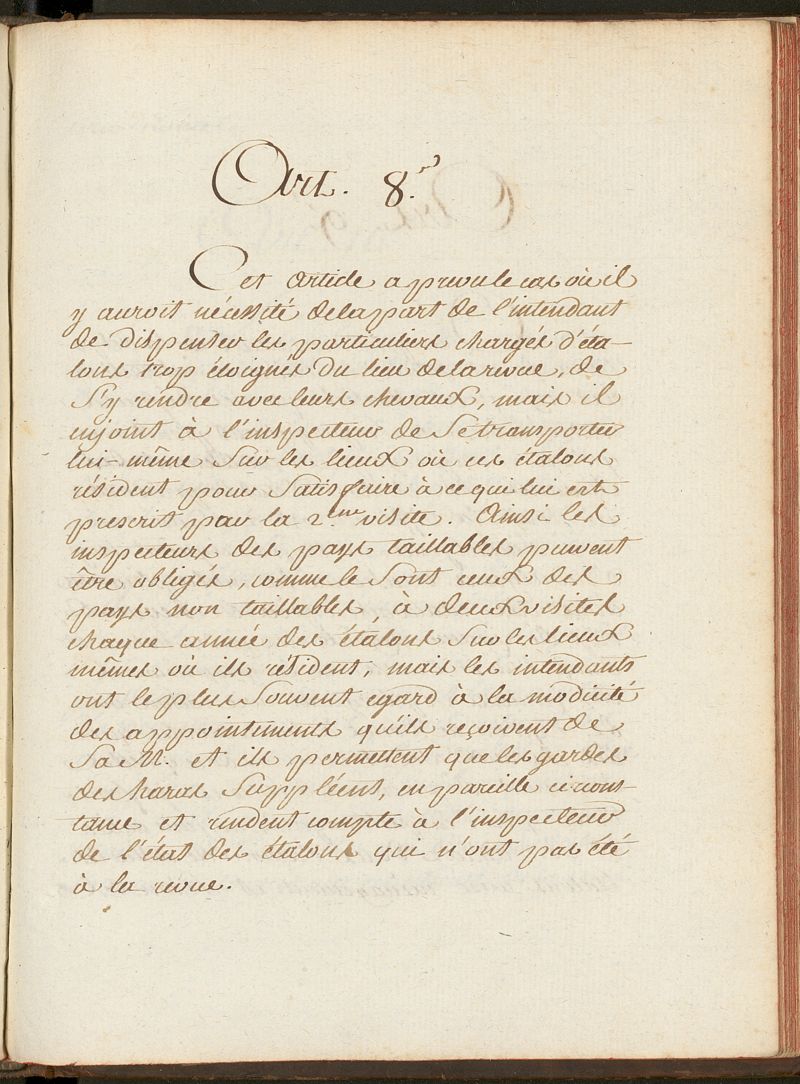 Art. 8.
Cet article a prevu le cas où il
y auroit nécessité de la part de l'intendant
de dispenser les particuliers chargés d'éta-
lons trop éloignés du lieu de la revue, de
s'y rendre avec leurs chevaux, mais il
enjoint à l'inspecteur de se transporter
lui-même sur les lieux où ces étalons
résident pour satisfaire à ce qui lui est
prescrit par la 2.me visite. Ainsi les
inspecteurs des pays taillables peuvent
être obligés, comme le sont ceux des
pays non taillables, à deux visites
chaque année des étalons sur les lieux
mêmes où ils résident, mais les intendants
ont le plus souvent egard à la modicité
des appointements qu'ils reçoivent de
Sa M. et ils permettent que les gardes
des haras suppléent, en pareille circons-
tance et rendent compte à l'inspecteur
de l'état des étalons qui n'ont pas été
à la revue.